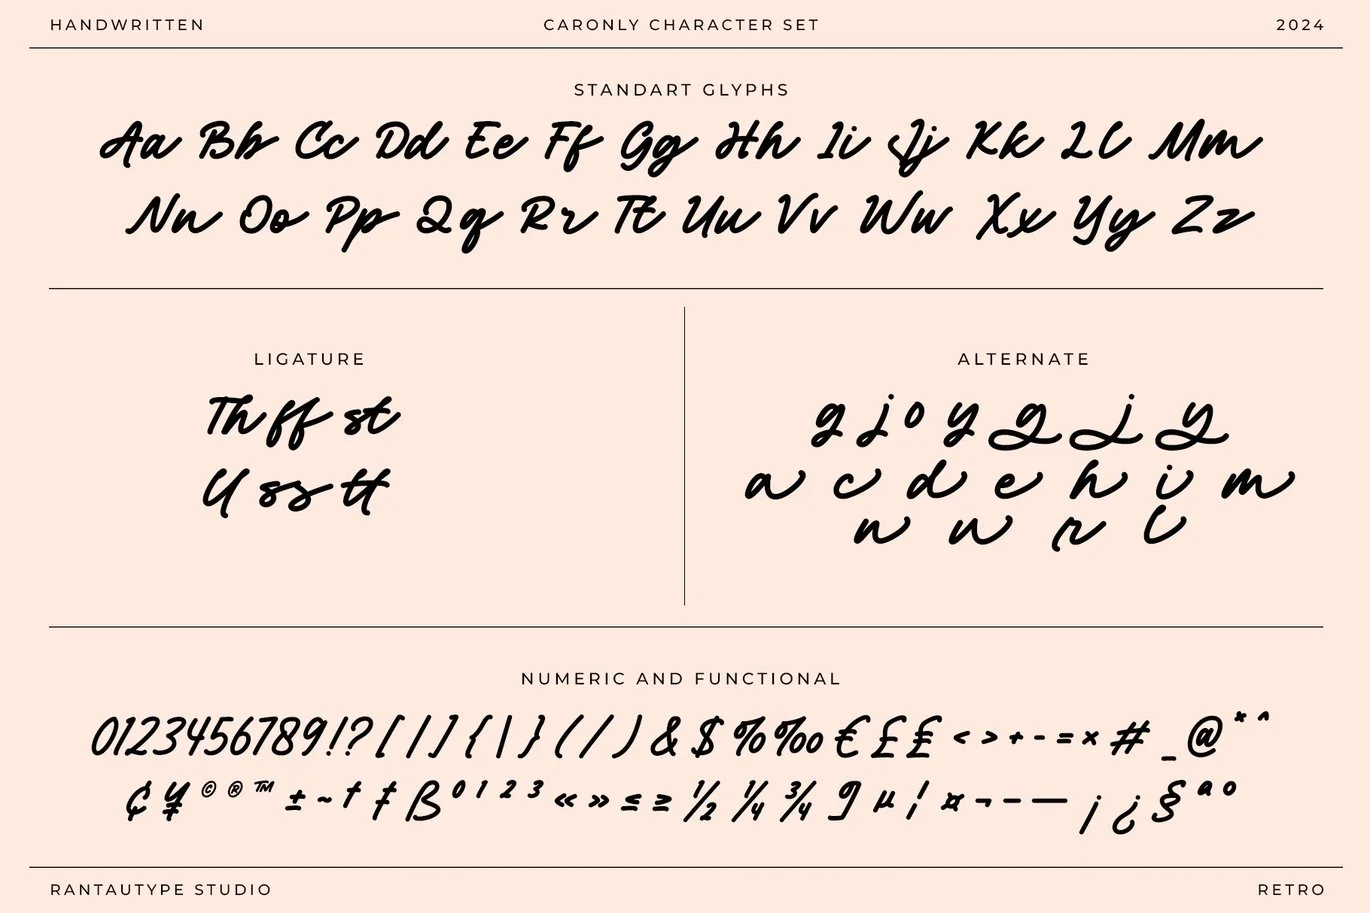 HANDWRITTEN
CARONLY CHARACTER SET
2024
STANDART GLYPHS
Aa Bb Cc Dd Ee Ff Gg Hh Ii Jj Kk Ll Mm
Nn Oo Pp Qq Rr Tt Uu Vv Ww Xx Yy Zz
LIGATURE
Th ff st
ll ss tt
ALTERNATE
g j o y g j y
a c d e h i m
n u r l
NUMERIC AND FUNCTIONAL
0123456789!?[/]{|}(/)&$%‰€££<>+-=×#_@*^
¢¥©®™±~†‡ß⁰¹²³«»≤≥½¼¾¶µ¦¤¬–—¡¿§ªº
RANTAUTYPE STUDIO
RETRO